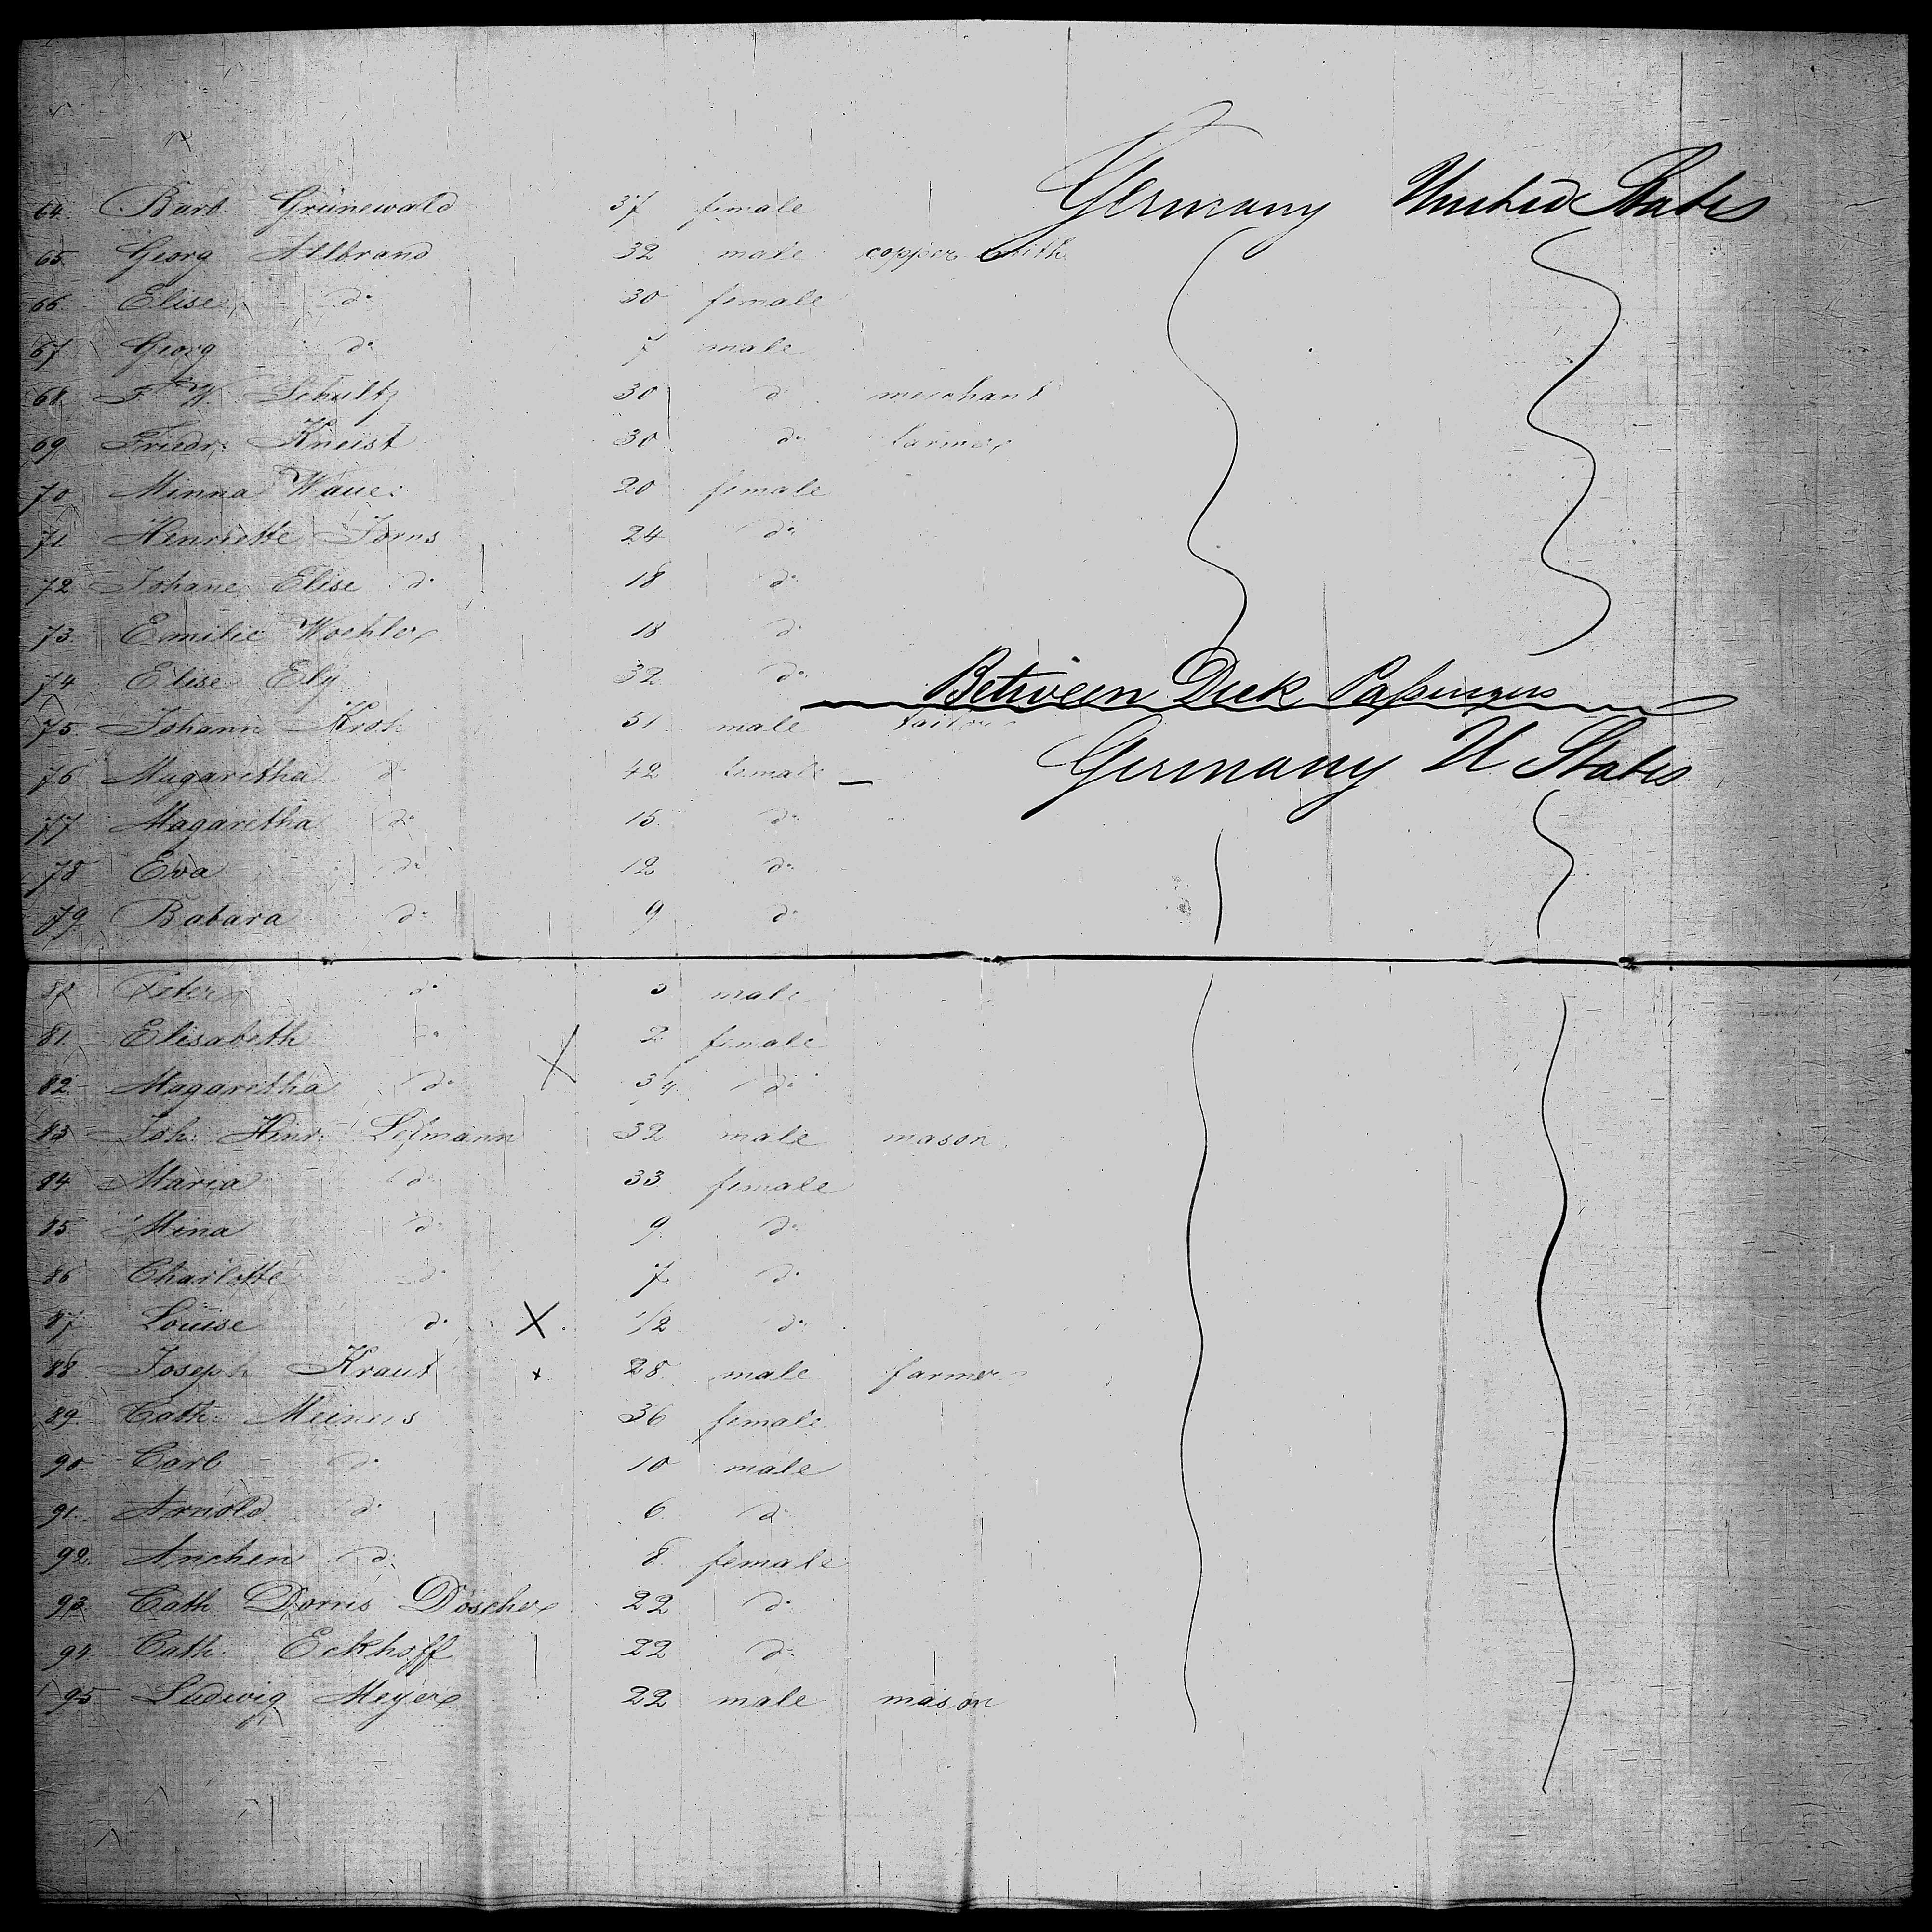 64. Barb. Grünewald 37. female Germany United States
65. Georg Allbrand 32 male copper smith
66. Elise do 30 female
67 Georg do 7 male
68. F W. Schultz 30 do merchant
69. Friedr. Kneist 30 do farmer
70 Minna Wauer 20 female
71. Henriette Jorns 24 do
72 Johane Elise do 18 do
73. Emilie Woehler 18 do
74 Elise Ely 32 do
Between Deck Passengers
75. Johann Kroh 51. male tailor
76 Magaretha do 42 female Germany U States
77 Magaretha do 15. do
78 Eva do 12 do
79. Babara do 9 do
Peter do male
81. Elisabeth do 2 female
82. Magaretha do X 3/4 do
83 Joh. Hinr. 32 male mason
84 Maria do 33 female
85. Mina do 9. do
86 Charlotte do 7. do
87 Louise do X 1/2 do
88 Joseph Kraut x 28. male farmer
89. Cath. Meiners 36 female
90. Carl do 10 male
91. Arnold do 6 do
92. Anchen do 8. female
93. Cath Dorris Döscher 22 do
94. Cath. Eckhoff 22 do
95 Ludwig Meyer 22 male mason